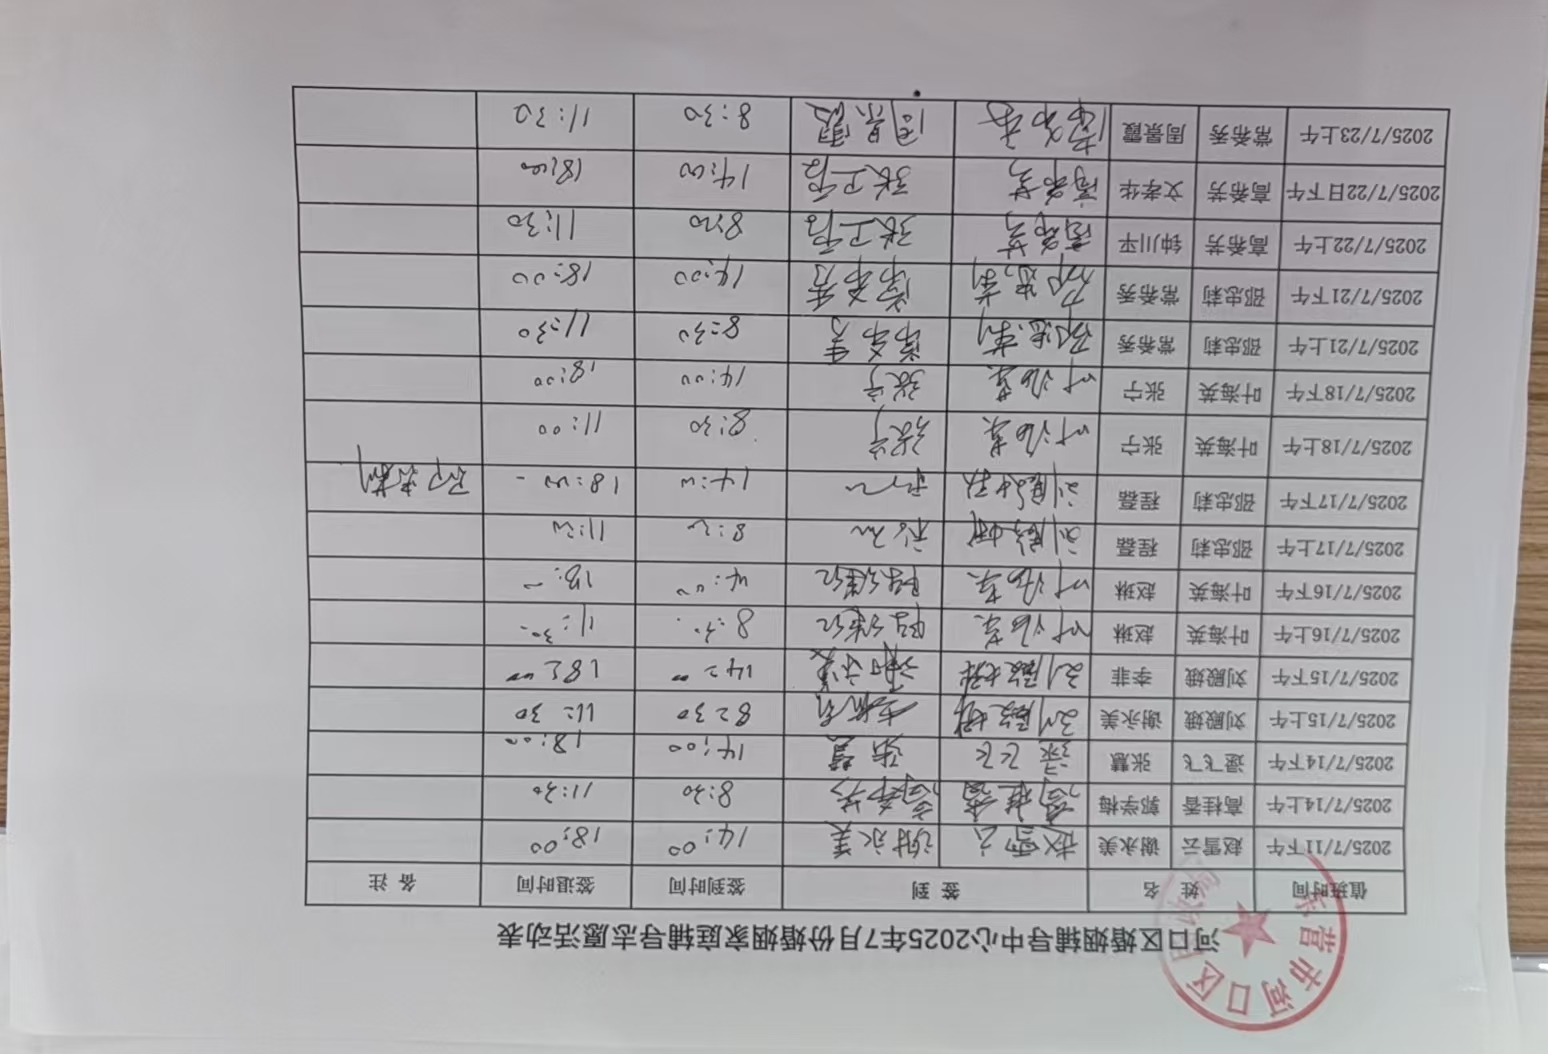 河口区婚姻辅导中心2025年7月份婚姻家庭辅导志愿活动表
东营市河口区民政局
值班时间 姓 名 签 到 签到时间 签退时间 备 注
2025/7/11下午 赵雪云 谢永美 赵雪云 谢永美 14:00 18:00
2025/7/14上午 高桂香 郭学梅 高桂香 高希芳 8:30 11:30
2025/7/14下午 逯飞飞 张慧 逯飞飞 张慧 14:00 18:00
2025/7/15上午 刘殿娥 谢永美 刘殿娥 8:30 11:30
2025/7/15下午 刘殿娥 李菲 刘殿娥 14:00 18:00
2025/7/16上午 叶海英 赵琳 叶海英 8:30 11:30
2025/7/16下午 叶海英 赵琳 叶海英 14:00 18:00
2025/7/17上午 邵忠莉 程磊 刘殿娥 8:30 11:30
2025/7/17下午 邵忠莉 程磊 刘殿娥 14:00 18:00 邵忠莉
2025/7/18上午 叶海英 张宁 叶海英 张宁 8:30 11:00
2025/7/18下午 叶海英 张宁 叶海英 张宁 14:00 18:00
2025/7/21上午 邵忠莉 常希秀 邵忠莉 常希秀 8:30 11:30
2025/7/21下午 邵忠莉 常希秀 邵忠莉 常希秀 14:00 18:00
2025/7/22上午 高希芳 钟川平 高希芳 张卫霞 8:30 11:30
2025/7/22日下午 高希芳 文孝华 高希芳 张卫霞 14:00 18:00
2025/7/23上午 常希秀 周景霞 常希秀 周景霞 8:30 11:30